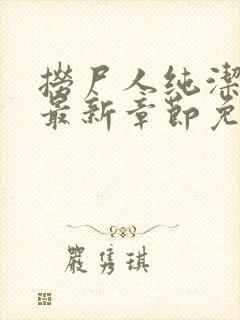 撈尸人純潔
最新章節免
嚴隽琪